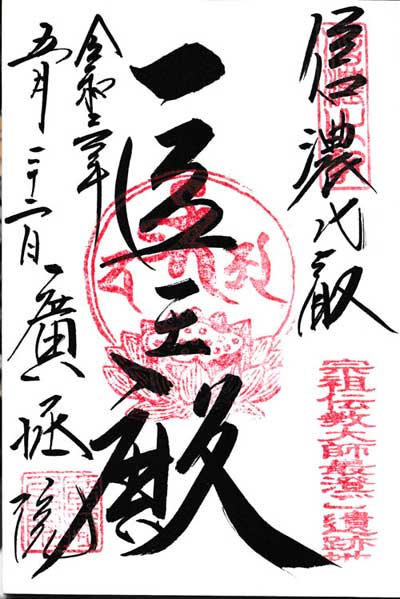 信濃比叡
宗祖伝教大師最澄ご遺跡地
医王殿
令和二年
五月二十二日
廣拯院